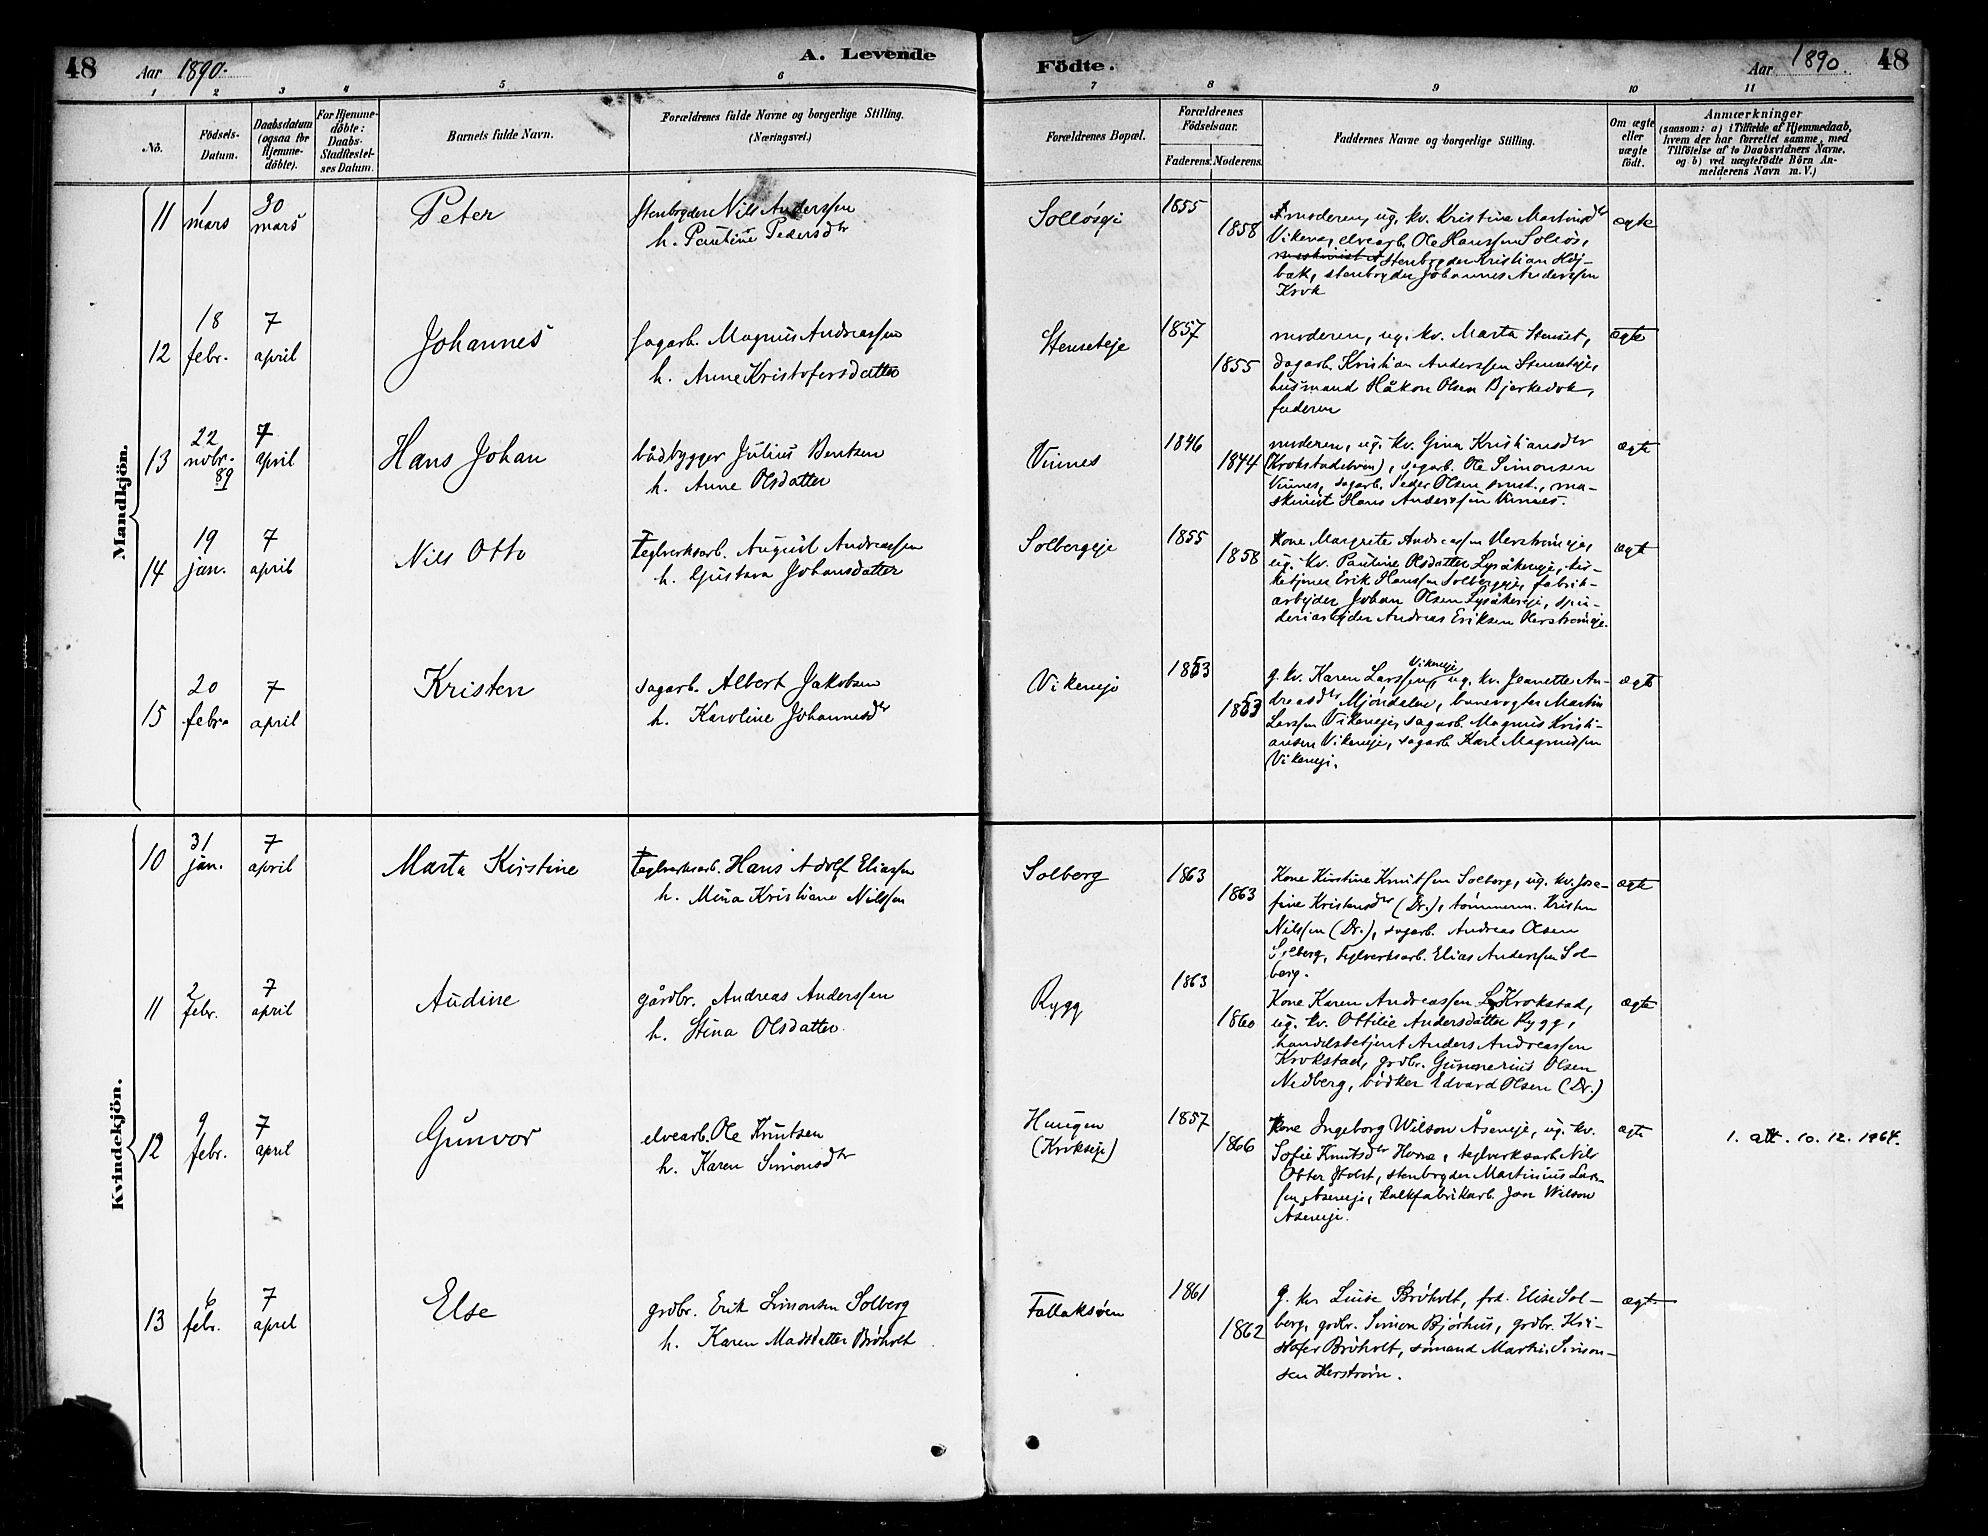 48 Aar 1890. A. Levende
Fødte. Aar 1890. 48
1 2 3 4 5 6 7 8 9 10 11
No.
Fødsels-
Datum.
Daabsdatum
(ogsaa for
Hjemme-
døbte).
For Hjemme-
døbte:
Daabs-
Stadfæstel-
ses Datum.
Barnets fulde Navn.
Forældrenes fulde Navne og borgerlige Stilling.
(Næringsvei.)
Forældrenes Bopæl.
Forældrenes
Fødselsaar.
Faderens. Moderens.
Faddernes Navne og borgerlige Stilling.
Om ægte
eller
uægte
født.
Anmærkninger
(saasom: a) i Tilfælde af Hjemmedaab,
hvem der har forrettet samme, med
Tilføielse af to Daabsvidners Navne,
og b) ved uægtefødte Børn An-
melderens Navn m. V.)
Mandkjøn.
11
1
mars
30
mars
Peter
Stenbryder Nils Anderssen
h. Pauline Pedersdr
Solløseje
1855
1858
moderen, ug. kv. Kristine Martinsdr
Vikeneje, elvearb. Ole Hanssen Solløs,
stenbryder Kristian Høj-
bæk, stenbryder Johannes Anderssen
Krok
ægte
12
18
febr.
7
april
Johannes
Sagarb. Magnus Andreassen
h. Anne Kristofersdatter
Stenseteje
1857
1855
moderen, ug. kv. Marta Stenset,
dagarb. Kristian Anderssen Stenseteje,
husmand Håkon Olsen Bjerkedok,
faderen
ægte
13
22
novbr.
89
7
april
Hans Johan
bådbygger Julius Bentsen
h. Anne Olsdatter
Vinnes
1846
1844
moderen, ug. kv. Gina Kristiansdr
(Krokstadelven), sagarb. Ole Simonsen
Vinnes, sagarb. Peder Olsen smst., ma-
skinist Hans Anderssen Vinnes.
ægte
14
19
jan.
7
april
Nils Otto
Teglverksarb. August Andreassen
h. Gustava Johansdatter
Solbergeje
1855
1858
Kone Margrete Andreassen Herstrømeje,
ug. kv. Pauline Olsdatter Lysåkereje, kir-
ketjener Erik Hanssen Solbergeje, fabrik-
arbejder Johan Olsen Lysåkereje, spin-
deriarbejder Andreas Eriksen Herstrømeje.
ægte
15
20
febr.
7
april
Kristen
sagarb. Albert Jakobsen
h. Karoline Johannesdr
Vikeneje
1853
1853
g. kv. Karen Larssen Vikeneje, ug. kv. Jeanette An-
dreasdr Mjøndalen, banevogter Martin
Larssen Vikeneje, sagarb. Magnus Kristi-
ansen Vikeneje, sagarb. Karl Magnussen
Vikeneje.
ægte
Kvindekjøn.
10
31
jan.
7
april
Marta Kirstine
Teglverksarb. Hans Adolf Eliassen
h. Mina Kristiane Nilssen
Solberg
1863
1863
Kone Kirstine Knutsen Solberg, ug. kv. Jose-
fine Kristensdr (Dr.), tømmerm. Kristen
Nilssen (Dr.), sagarb. Andreas Olsen
Solberg, teglverksarb. Elias Anderssen Sol-
berg.
ægte
11
2
febr.
7
april
Audine
gårdbr. Andreas Anderssen
h. Stina Olsdatter
Rygg
1863
1860
Kone Karen Andreassen Krokstad,
ug. kv. Ottilie Andersdatter Rygg,
handelsbetjent Anders Andreassen
Krokstad, grdbr. Gunnerius Olsen
Nedberg, bødker Edvard Olsen (Dr.)
ægte
12
9
febr.
7
april
Gunvor
elvearb. Ole Knutsen
h. Karen Simonsdr
Haugen
(Krokseje)
1857
1866
Kone Ingeborg Wilson Åseneje, ug. kv.
Sofie Knutsdr Horne, teglverksarb. Nils
Otter Holst, stenbryder Martinius Lars-
sen Aseneje, kalkfabrikarb. Jon Wilson
Aseneje.
ægte
1. att. 10.12.1964.
13
6
febr.
7
april
Else
grdbr. Erik Simonsen Solberg
h. Karen Madsdatter Brøholt
Fallaksøen
1861
1862
g. kv Luise Brøholt, frk. Elise Sol-
berg, grdbr. Simen Bjørhus, grdbr. Kri-
stofer Brøholt, sømand Martin Simon-
sen Herstrøm.
ægte